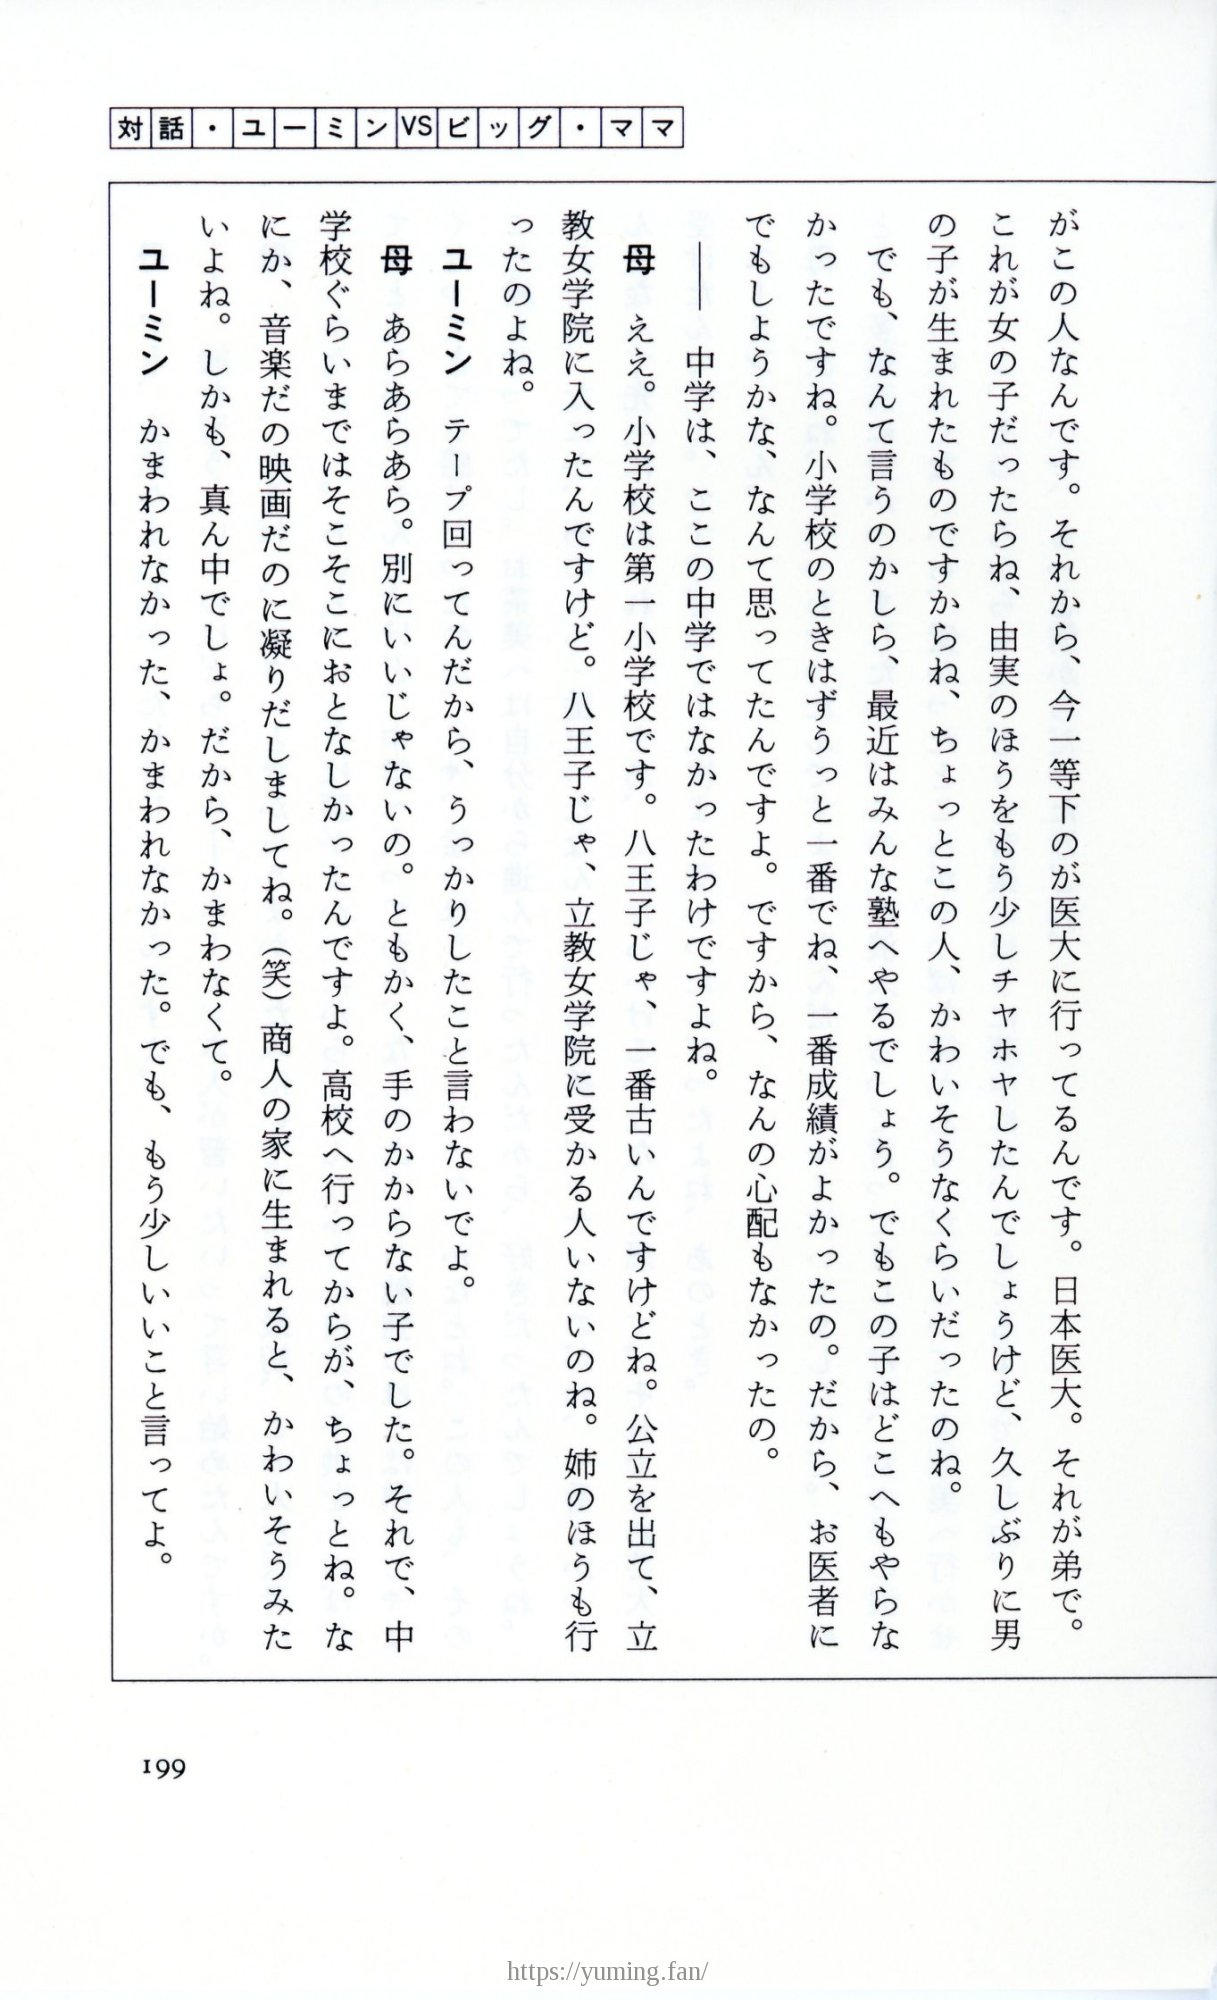 対話・ユーミンVSビッグ・ママ
がこの人なんです。それから、今一等下のが医大に行ってるんです。日本医大。それが弟で。
これが女の子だったらね、由実のほうをもう少しチヤホヤしたんでしょうけど、久しぶりに男
の子が生まれたものですからね、ちょっとこの人、かわいそうなくらいだったのね。
でも、なんて言うのかしら、最近はみんな塾へやるでしょう。でもこの子はどこへもやらな
かったですね。小学校のときはずうっと一番でね、一番成績がよかったの。だから、お医者に
でもしようかな、なんて思ってたんですよ。ですから、なんの心配もなかったの。
――中学は、ここの中学ではなかったわけですよね。
母　ええ。小学校は第一小学校です。八王子じゃ、一番古いんですけどね。公立を出て、立
教女学院に入ったんですけど。八王子じゃ、立教女学院に受かる人いないのね。姉のほうも行
ったのよね。
ユーミン　テープ回ってんだから、うっかりしたこと言わないでよ。
母　あらあらあら。別にいいじゃないの。ともかく、手のかからない子でした。それで、中
学校ぐらいまではそこそこにおとなしかったんですよ。高校へ行ってからが、ちょっとね。な
にか、音楽だの映画だのに凝りだしましてね。（笑）商人の家に生まれると、かわいそうみた
いよね。しかも、真ん中でしょ。だから、かまわなくて。
ユーミン　かまわれなかった、かまわれなかった。でも、もう少しいいこと言ってよ。
199
https://yuming.fan/